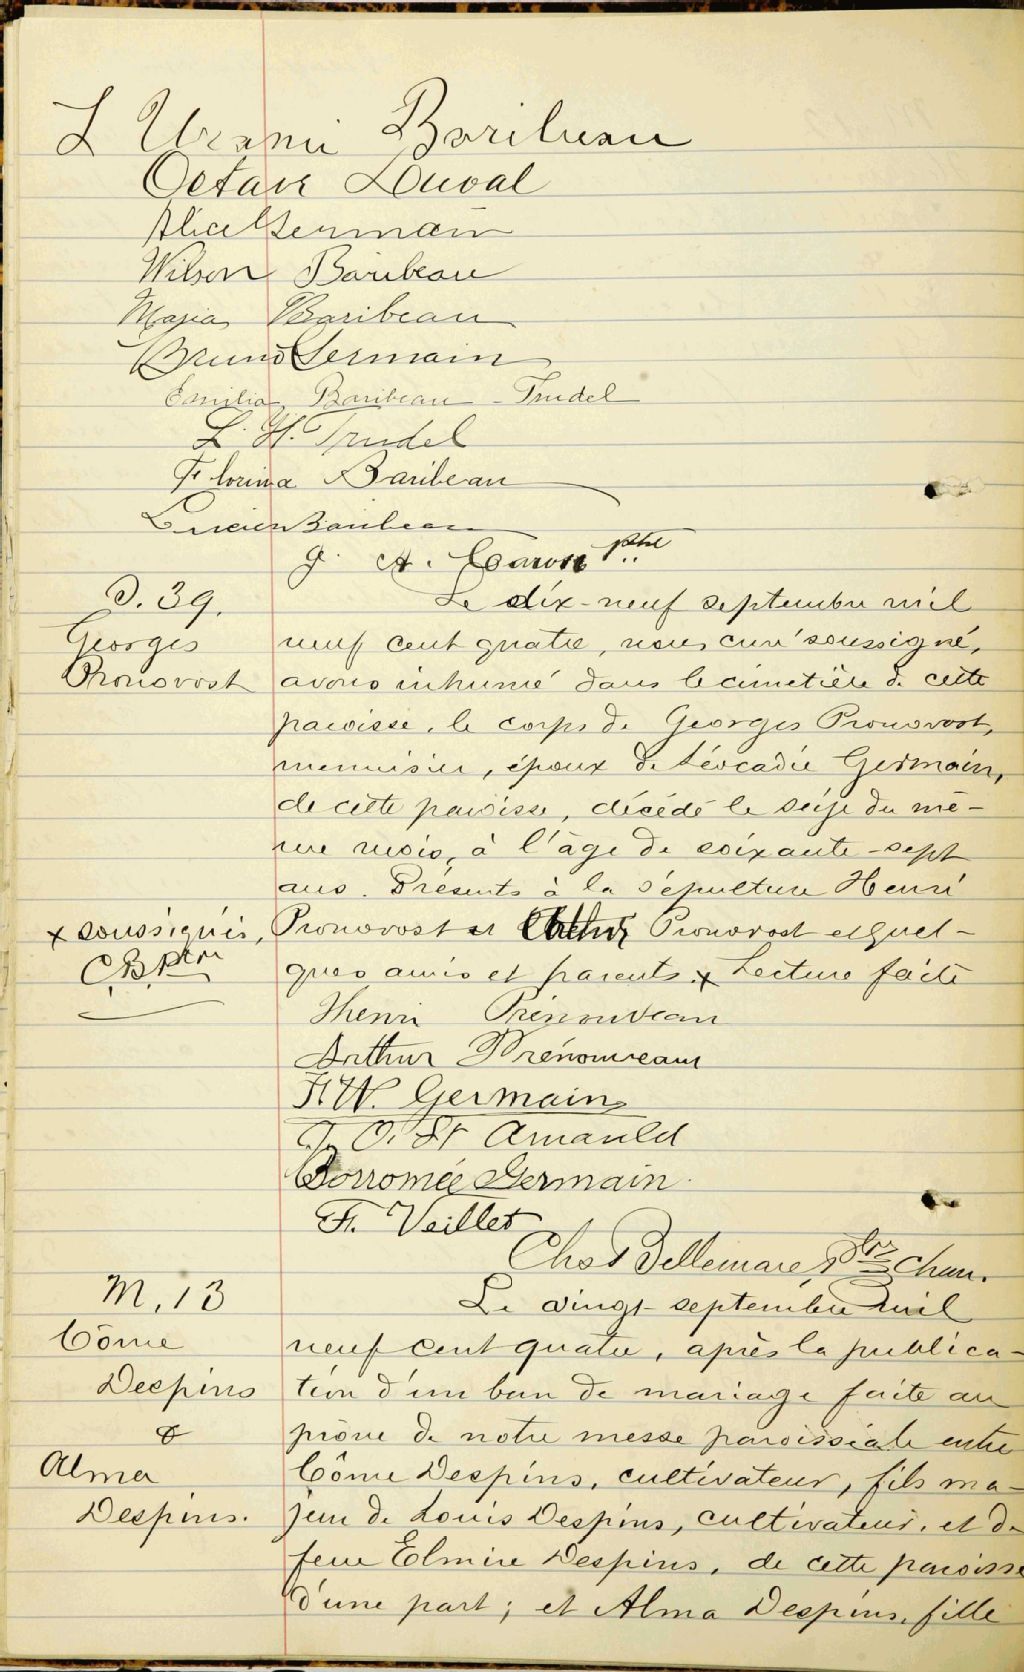 L Uranie Baribeau
Octave Duval
Alice Germain
Wilson Baribeau
Maria Baribeau
Bruno Germain
Emilia Baribeau - Trudel
L. H. Trudel
Florina Baribeau
Lucien Baribeau
J. A. Caron ptre
S. 39. Le dix-neuf septembre mil
Georges neuf cent quatre, nous curé soussigné,
Pronovost avons inhumé dans le cimetière de cette
paroisse, le corps de Georges Pronovost,
menuisier, époux de Léocadie Germain,
de cette paroisse, décédé le seize du mê-
me mois, à l'âge de soixante-sept
ans. Présents à la sépulture Henri
x soussignés, Pronovost et Arthur Pronovost et quel-
C.B. Ptre ques amis et parents. x Lecture faite
Henri Prénouveau
Arthur Prénouveau
F. W. Germain
J. O. St Arnauld
Borromée Germain
F. Veillet
Chs Bellemare, Ptre Chan.
M. 13 Le vingt septembre mil
Côme neuf cent quatre, après la publica-
Despins tion d'un ban de mariage faite au
& prône de notre messe paroissiale entre
Alma Côme Despins, cultivateur, fils ma-
Despins. jeur de Louis Despins, cultivateur, et de
feue Elmire Despins, de cette paroisse
d'une part; et Alma Despins, fille